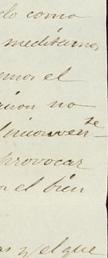 lo como
meditemos
mos el
cion no
inconven
te
provocar
on el bien
as y el que